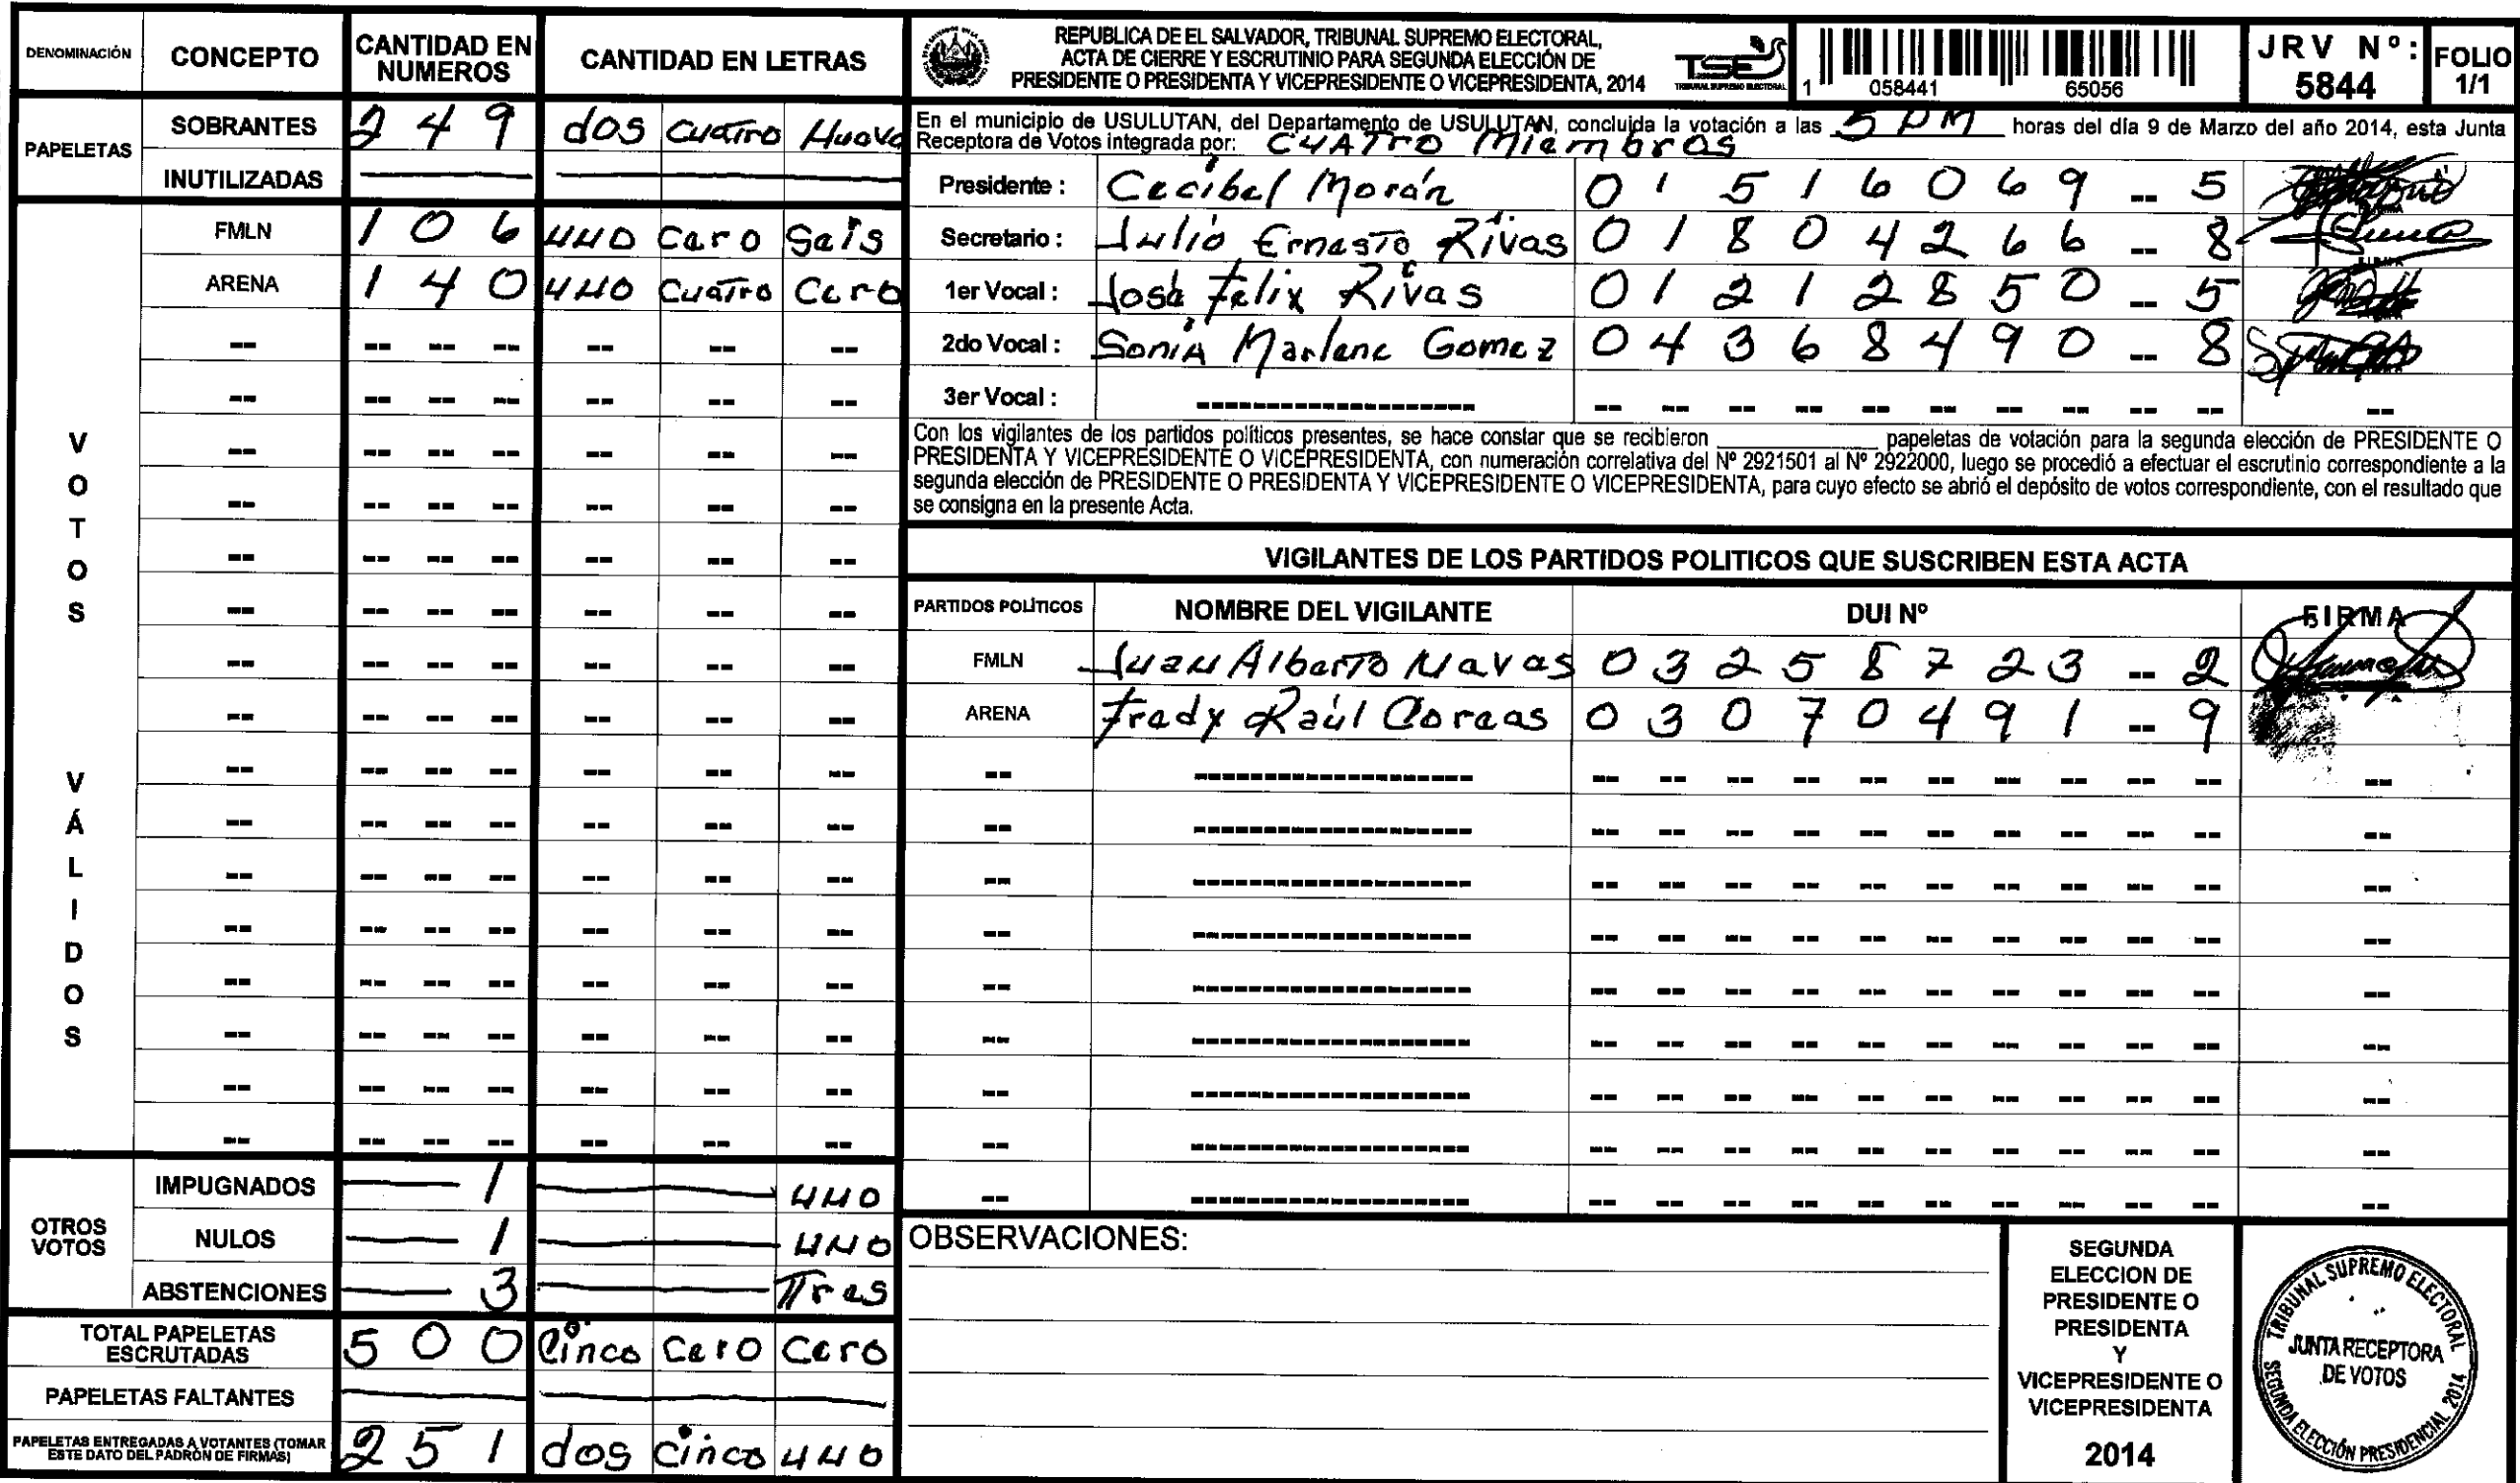 DENOMINACIÓN CONCEPTO CANTIDAD EN NUMEROS CANTIDAD EN LETRAS
PAPELETAS
SOBRANTES 2 4 9 dos cuatro Nueve
INUTILIZADAS
VOTOS VÁLIDOS
FMLN 1 0 6 uno cero seis
ARENA 1 4 0 uno cuatro cero
OTROS VOTOS
IMPUGNADOS 1 uno
NULOS 1 uno
ABSTENCIONES 3 Tres
TOTAL PAPELETAS ESCRUTADAS 5 0 0 Cinco cero cero
PAPELETAS FALTANTES
PAPELETAS ENTREGADAS A VOTANTES (TOMAR ESTE DATO DEL PADRÓN DE FIRMAS) 2 5 1 dos cinco uno
REPUBLICA DE EL SALVADOR, TRIBUNAL SUPREMO ELECTORAL,
ACTA DE CIERRE Y ESCRUTINIO PARA SEGUNDA ELECCIÓN DE
PRESIDENTE O PRESIDENTA Y VICEPRESIDENTE O VICEPRESIDENTA, 2014
TSE
TRIBUNAL SUPREMO ELECTORAL
1 058441 65056
JRV Nº: 5844
FOLIO 1/1
En el municipio de USULUTAN, del Departamento de USULUTAN, concluida la votación a las 5 PM horas del día 9 de Marzo del año 2014, esta Junta
Receptora de Votos integrada por: CUATRO Miembros
Presidente : Cecibel Morán 0 1 5 1 6 0 6 9 -- 5
Secretario : Julio Ernesto Rivas 0 1 8 0 4 2 6 6 -- 8
1er Vocal : José Felix Rivas 0 1 2 1 2 8 5 0 -- 5
2do Vocal : Sonia Marlene Gomez 0 4 3 6 8 4 9 0 -- 8
3er Vocal :
Con los vigilantes de los partidos políticos presentes, se hace constar que se recibieron ________ papeletas de votación para la segunda elección de PRESIDENTE O
PRESIDENTA Y VICEPRESIDENTE O VICEPRESIDENTA, con numeración correlativa del Nº 2921501 al Nº 2922000, luego se procedió a efectuar el escrutinio correspondiente a la
segunda elección de PRESIDENTE O PRESIDENTA Y VICEPRESIDENTE O VICEPRESIDENTA, para cuyo efecto se abrió el depósito de votos correspondiente, con el resultado que
se consigna en la presente Acta.
VIGILANTES DE LOS PARTIDOS POLITICOS QUE SUSCRIBEN ESTA ACTA
PARTIDOS POLÍTICOS NOMBRE DEL VIGILANTE DUI Nº FIRMA
FMLN Juan Alberto Navas 0 3 2 5 8 7 2 3 -- 2
ARENA Fredy Raúl Coreas 0 3 0 7 0 4 9 1 -- 9
OBSERVACIONES:
SEGUNDA
ELECCION DE
PRESIDENTE O
PRESIDENTA
Y
VICEPRESIDENTE O
VICEPRESIDENTA
2014
TRIBUNAL SUPREMO ELECTORAL
JUNTA RECEPTORA
DE VOTOS
SEGUNDA ELECCIÓN PRESIDENCIAL 2014